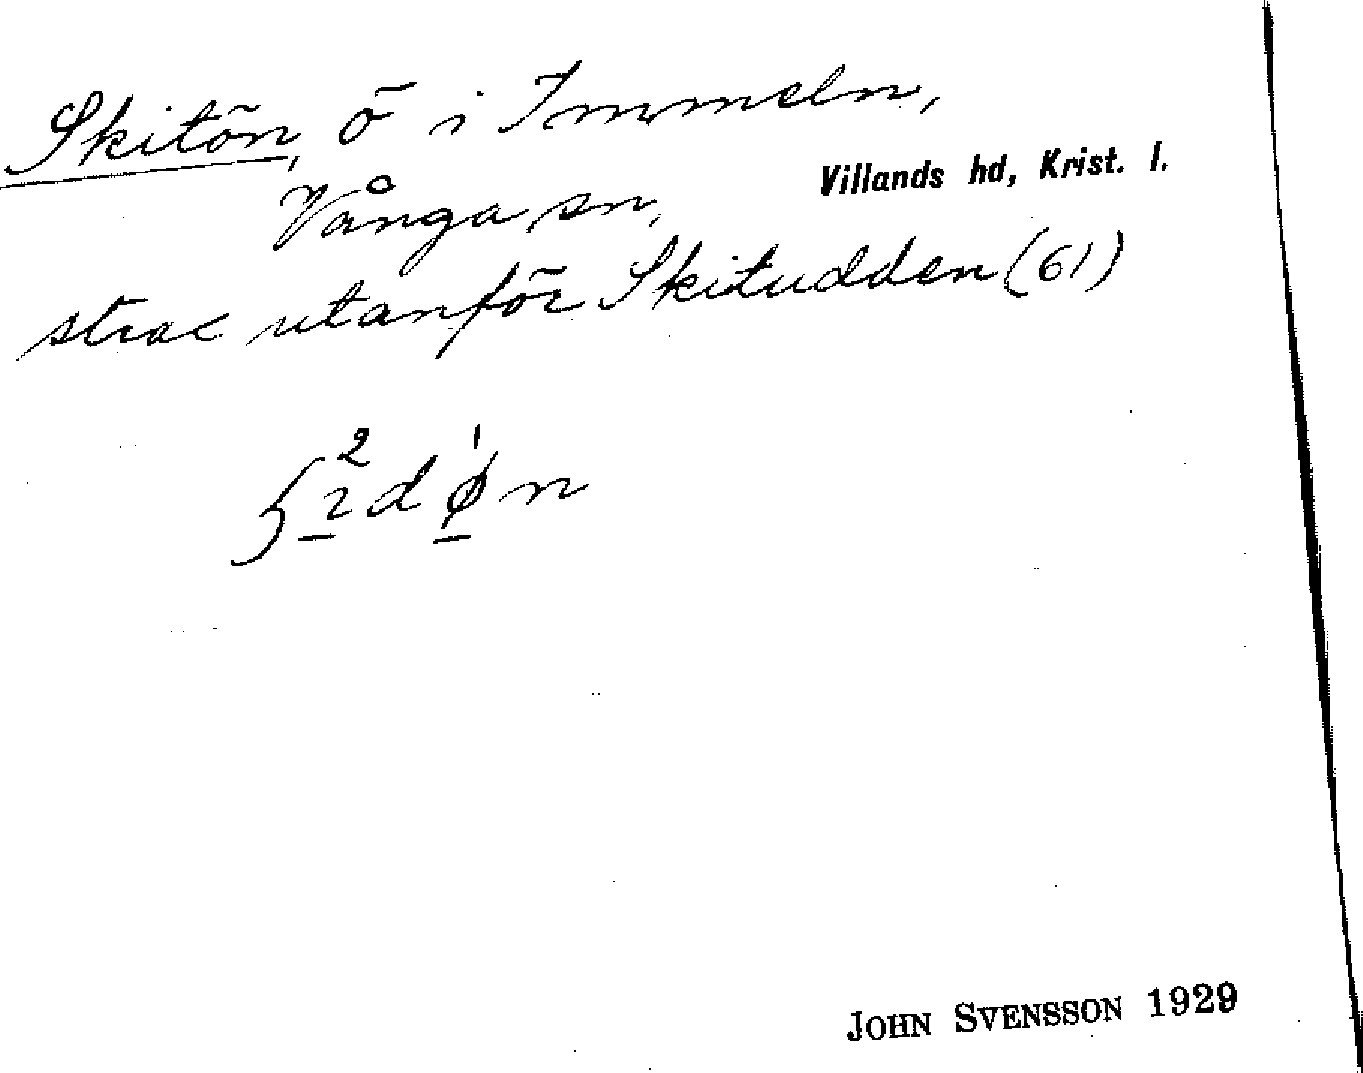 Skitön, ö i Immeln,
Villands hd, Krist. l.
Vånga sn,
strax utanför Skitudden (61)
JOHN SVENSSON 1929